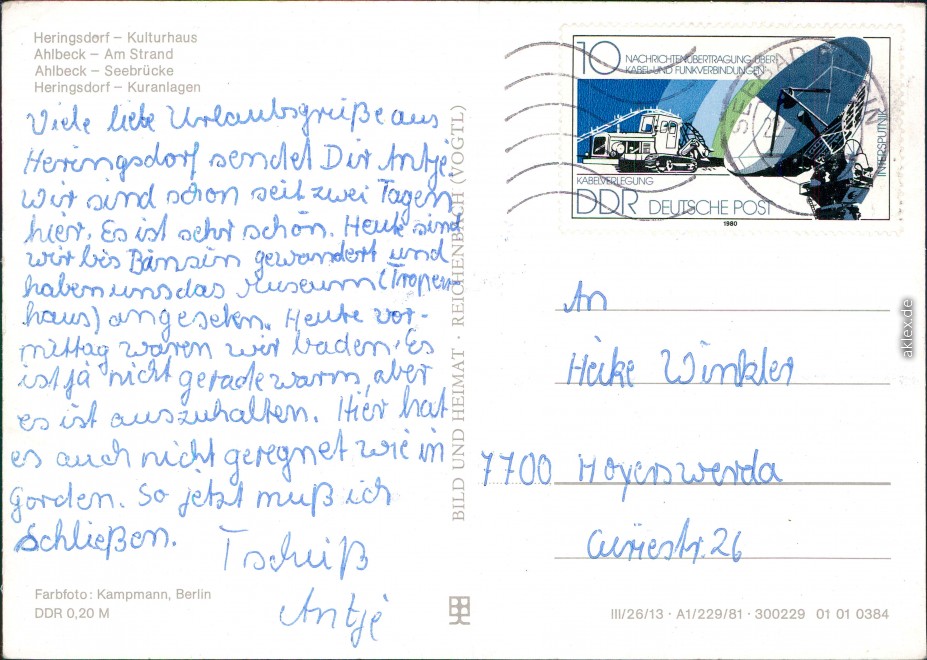 Heringsdorf – Kulturhaus
Ahlbeck – Am Strand
Ahlbeck – Seebrücke
Heringsdorf – Kuranlagen
Viele liebe Urlaubsgrüße aus
Heringsdorf sendet Dir Antje.
Wir sind schon seit zwei Tagen
hier. Es ist sehr schön. Heute sind
wir bis Bansin gewandert und
haben uns das Museum (Tropen-
haus) angesehen. Heute vor-
mittag waren wir baden. Es
ist ja nicht gerade warm, aber
es ist auszuhalten. Hier hat
es auch nicht geregnet wie in
Gorden. So jetzt muß ich
Schließen.
Tschüß
Antje
Farbfoto: Kampmann, Berlin
DDR 0,20 M
BILD UND HEIMAT · REICHENBACH (VOGTL)
10 NACHRICHTENÜBERTRAGUNG ÜBER
KABEL- UND FUNKVERBINDUNGEN
KABELVERLEGUNG
DDR DEUTSCHE POST
INTERSPUTNIK
1980
SEEBAD
An
Heike Winkler
7700 Hoyerswerda
Curiestr. 26
III/26/13 · A1/229/81 · 300229 01 01 0384
aklex.de